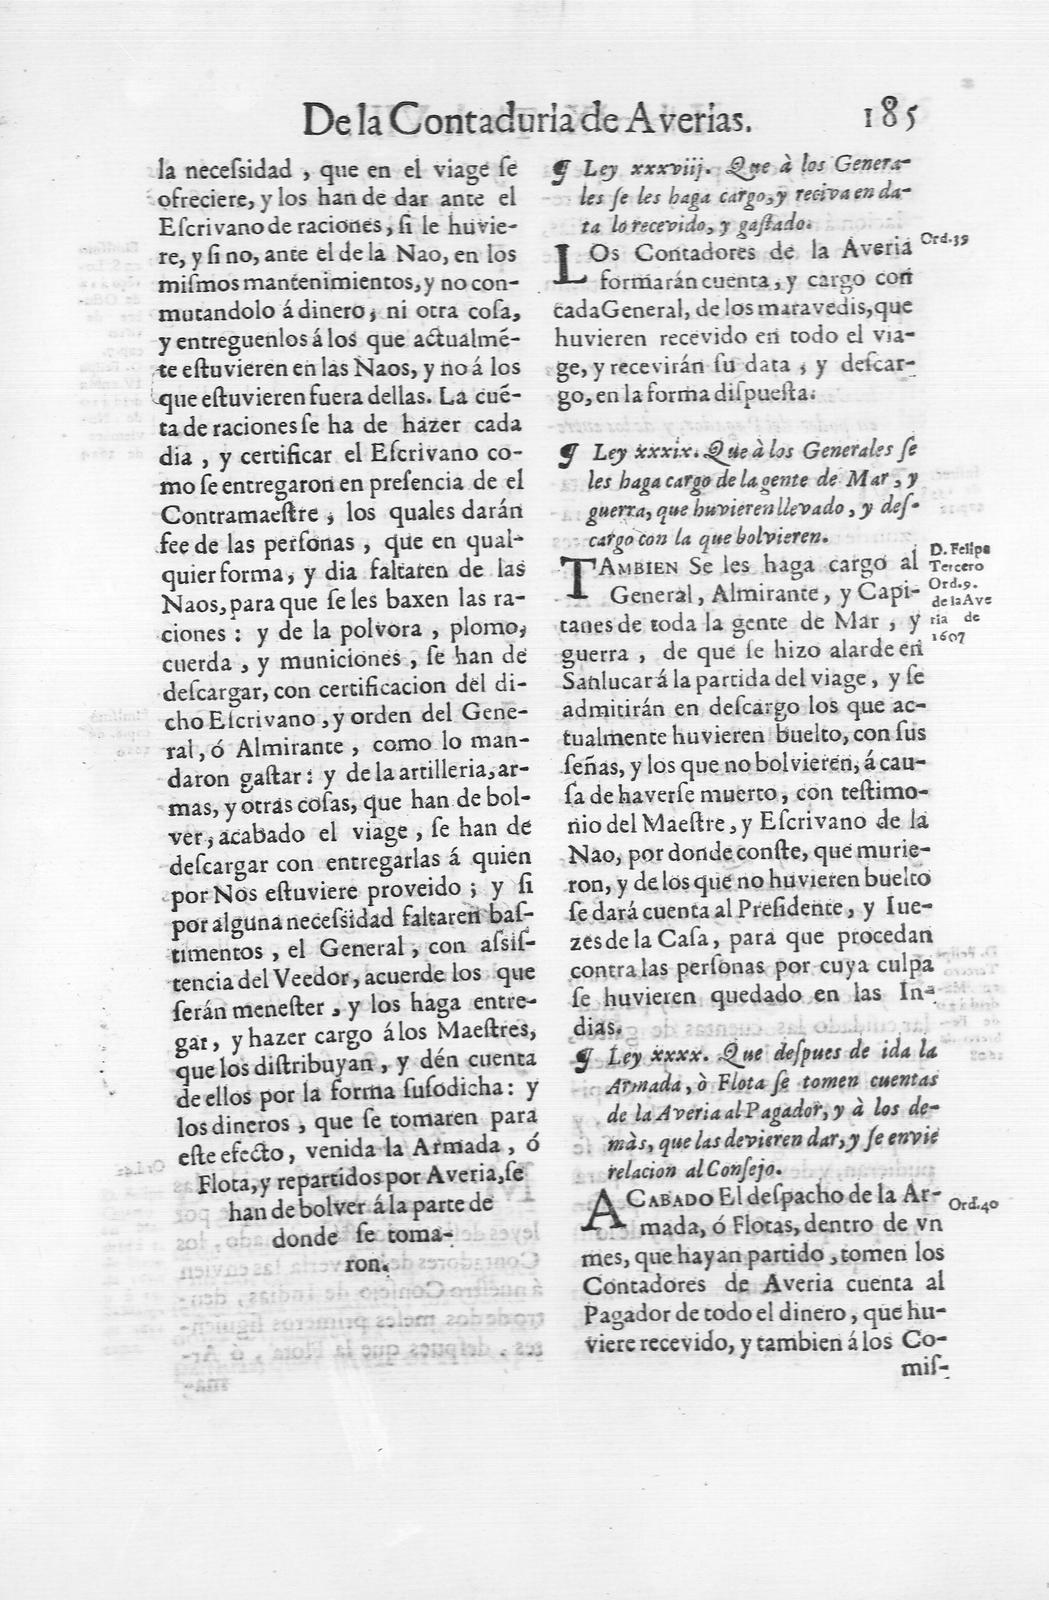 De la Contaduria de Averias. 185
la neceſsidad , que en el viage ſe
ofreciere, y los han de dar ante el
Eſcrivano de raciones, ſi le huvie-
re, y ſi no, ante el de la Nao, en los
miſmos mantenimientos, y no con-
mutandolo á dinero, ni otra coſa,
y entreguenlos á los que actualmē-
te eſtuvieren en las Naos, y no á los
que eſtuvieren fuera dellas. La cuē-
ta de raciones ſe ha de hazer cada
dia , y certificar el Eſcrivano co-
mo ſe entregaron en preſencia de el
Contramaeſtre , los quales darán
fee de las perſonas , que en qual-
quier forma, y dia faltaren de las
Naos, para que ſe les baxen las ra-
ciones : y de la polvora , plomo,
cuerda , y municiones , ſe han de
deſcargar, con certificacion del di-
cho Eſcrivano , y orden del Gene-
ral, ó Almirante , como lo man-
daron gaſtar: y de la artilleria, ar-
mas, y otras coſas, que han de bol-
ver, acabado el viage , ſe han de
deſcargar con entregarlas á quien
por Nos eſtuviere proveido ; y ſi
por alguna neceſsidad faltaren baſ-
timentos , el General, con aſsiſ-
tencia del Veedor, acuerde los que
ſerán meneſter , y los haga entre-
gar, y hazer cargo á los Maeſtres,
que los diſtribuyan, y dén cuenta
de ellos por la forma ſuſodicha: y
los dineros , que ſe tomaren para
eſte efecto, venida la Armada , ó
Flota, y repartidos por Averia, ſe
han de bolver á la parte de
donde ſe toma-
ron.
¶ Ley xxxviij. Que à los Genera-
les ſe les haga cargo, y reciva en da-
ta lo recevido, y gaſtado.
LOs Contadores de la Averia
formarán cuenta, y cargo con
cada General, de los maravedis, que
huvieren recevido en todo el via-
ge, y recevirán ſu data , y deſcar-
go, en la forma diſpueſta.
Ord.39
¶ Ley xxxix. Que à los Generales ſe
les haga cargo de la gente de Mar, y
guerra, que huvieren llevado, y deſ-
cargo con la que bolvieren.
TAMBIEN Se les haga cargo al
General, Almirante, y Capi-
tanes de toda la gente de Mar , y
guerra , de que ſe hizo alarde en
Sanlucar á la partida del viage, y ſe
admitirán en deſcargo los que ac-
tualmente huvieren buelto, con ſus
ſeñas, y los que no bolvieren, á cau-
ſa de haverſe muerto, con teſtimo-
nio del Maeſtre, y Eſcrivano de la
Nao, por donde conſte, que murie-
ron, y de los que no huvieren buelto
ſe dará cuenta al Preſidente, y Iue-
zes de la Caſa, para que procedan
contra las perſonas por cuya culpa
ſe huvieren quedado en las In-
dias.
D. Felipe
Tercero
Ord.9.
de la Ave
ria de
1607
¶ Ley xxxx. Que deſpues de ida la
Armada, ò Flota ſe tomen cuentas
de la Averia al Pagador, y à los de-
màs, que las devieren dar, y ſe envie
relacion al Conſejo.
ACABADO El deſpacho de la Ar-
mada, ó Flotas, dentro de vn
mes, que hayan partido, tomen los
Contadores de Averia cuenta al
Pagador de todo el dinero, que hu-
viere recevido, y tambien á los Co-
miſ-
Ord.40